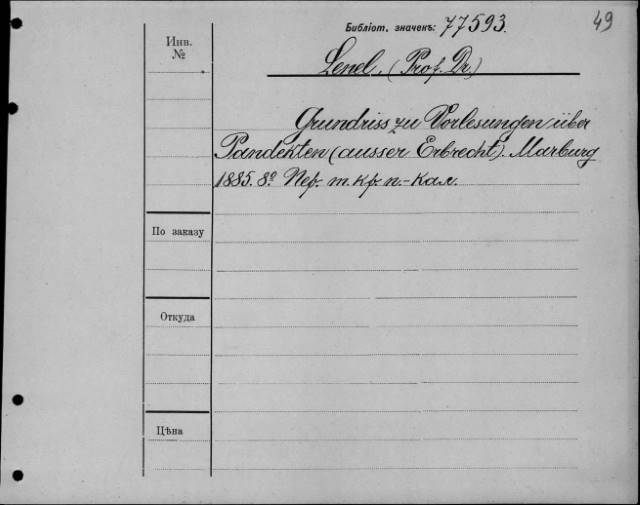 Библіот. значекъ: 77593.
49
Инв.
№
Lenel. (Prof. Dr.)
Grundriss zu Vorlesungen über
Pandekten (ausser Erbrecht). Marburg
1885. 8º Пер. т. кр. п.-кал.
По заказу
Откуда
Цѣна